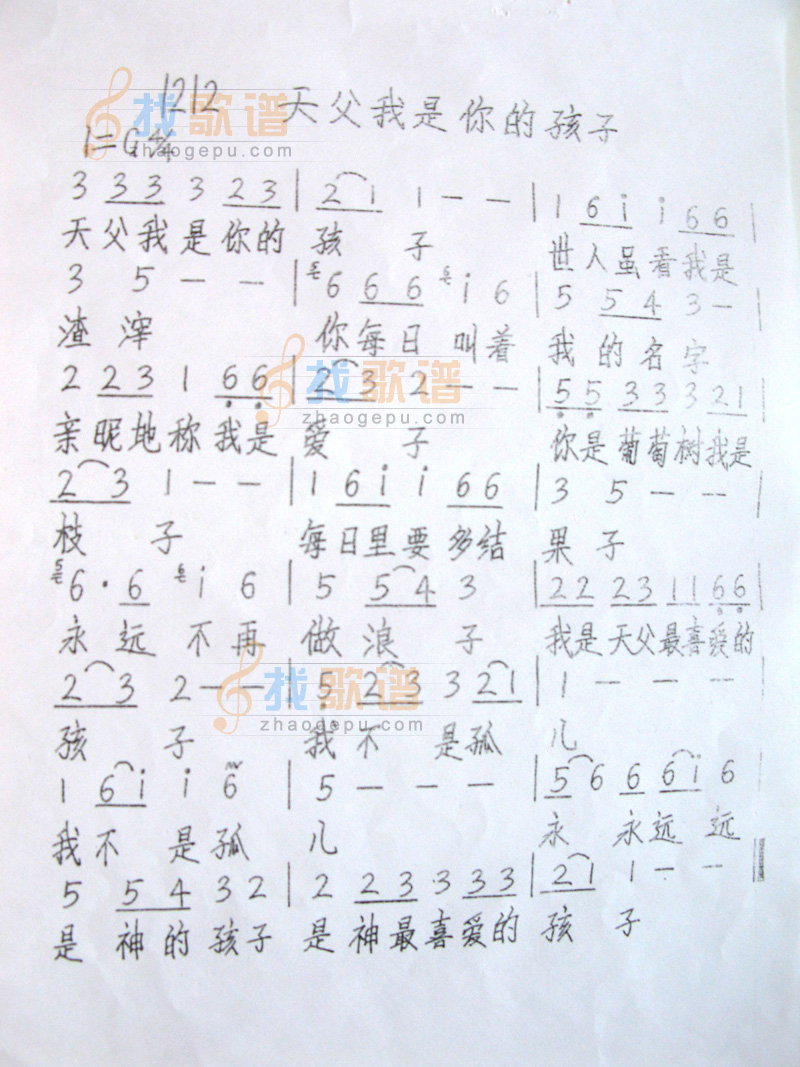 1212 天父我是你的孩子
1=G 4/4
3 3 3 3 2 3 | 2 1 1 — — | 1 6 i i 6 6 |
天父我是你的 孩 子 世人虽看我是
3 5 — — | 6 6 6 i 6 | 5 5 4 3 —
渣滓 你每日叫着 我的名字
2 2 3 1 6 6 | 2 3 2 — — | 5 5 3 3 3 2 1 |
亲昵地称我是 爱 子 你是葡萄树我是
2 3 1 — — | 1 6 i i 6 6 | 3 5 — — |
枝 子 每日里要多结 果子
6 · 6 i 6 | 5 5 4 3 | 2 2 2 3 1 1 6 6 |
永远不再 做浪子 我是天父最喜爱的
2 3 2 — — | 5 2 3 3 2 1 | 1 — — —
孩 子 我不是孤 儿
1 6 i i 6 | 5 — — — | 5 6 6 6 i 6
我不是孤 儿 永 永远远
5 5 4 3 2 | 2 2 3 3 3 3 | 2 1 1 — —
是神的孩子 是神最喜爱的 孩 子
找歌谱
zhaogepu.com
找歌谱
zhaogepu.com
找歌谱
zhaogepu.com
找歌谱
zhaogepu.com